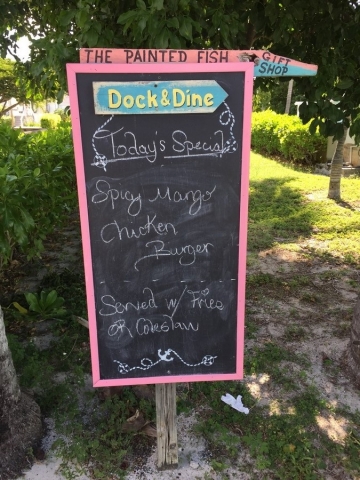 THE PAINTED FISH
GIFT
SHOP
Dock & Dine
Today's Special
Spicy Mango
Chicken
Burger
Served w/ Fries
OR Coleslaw